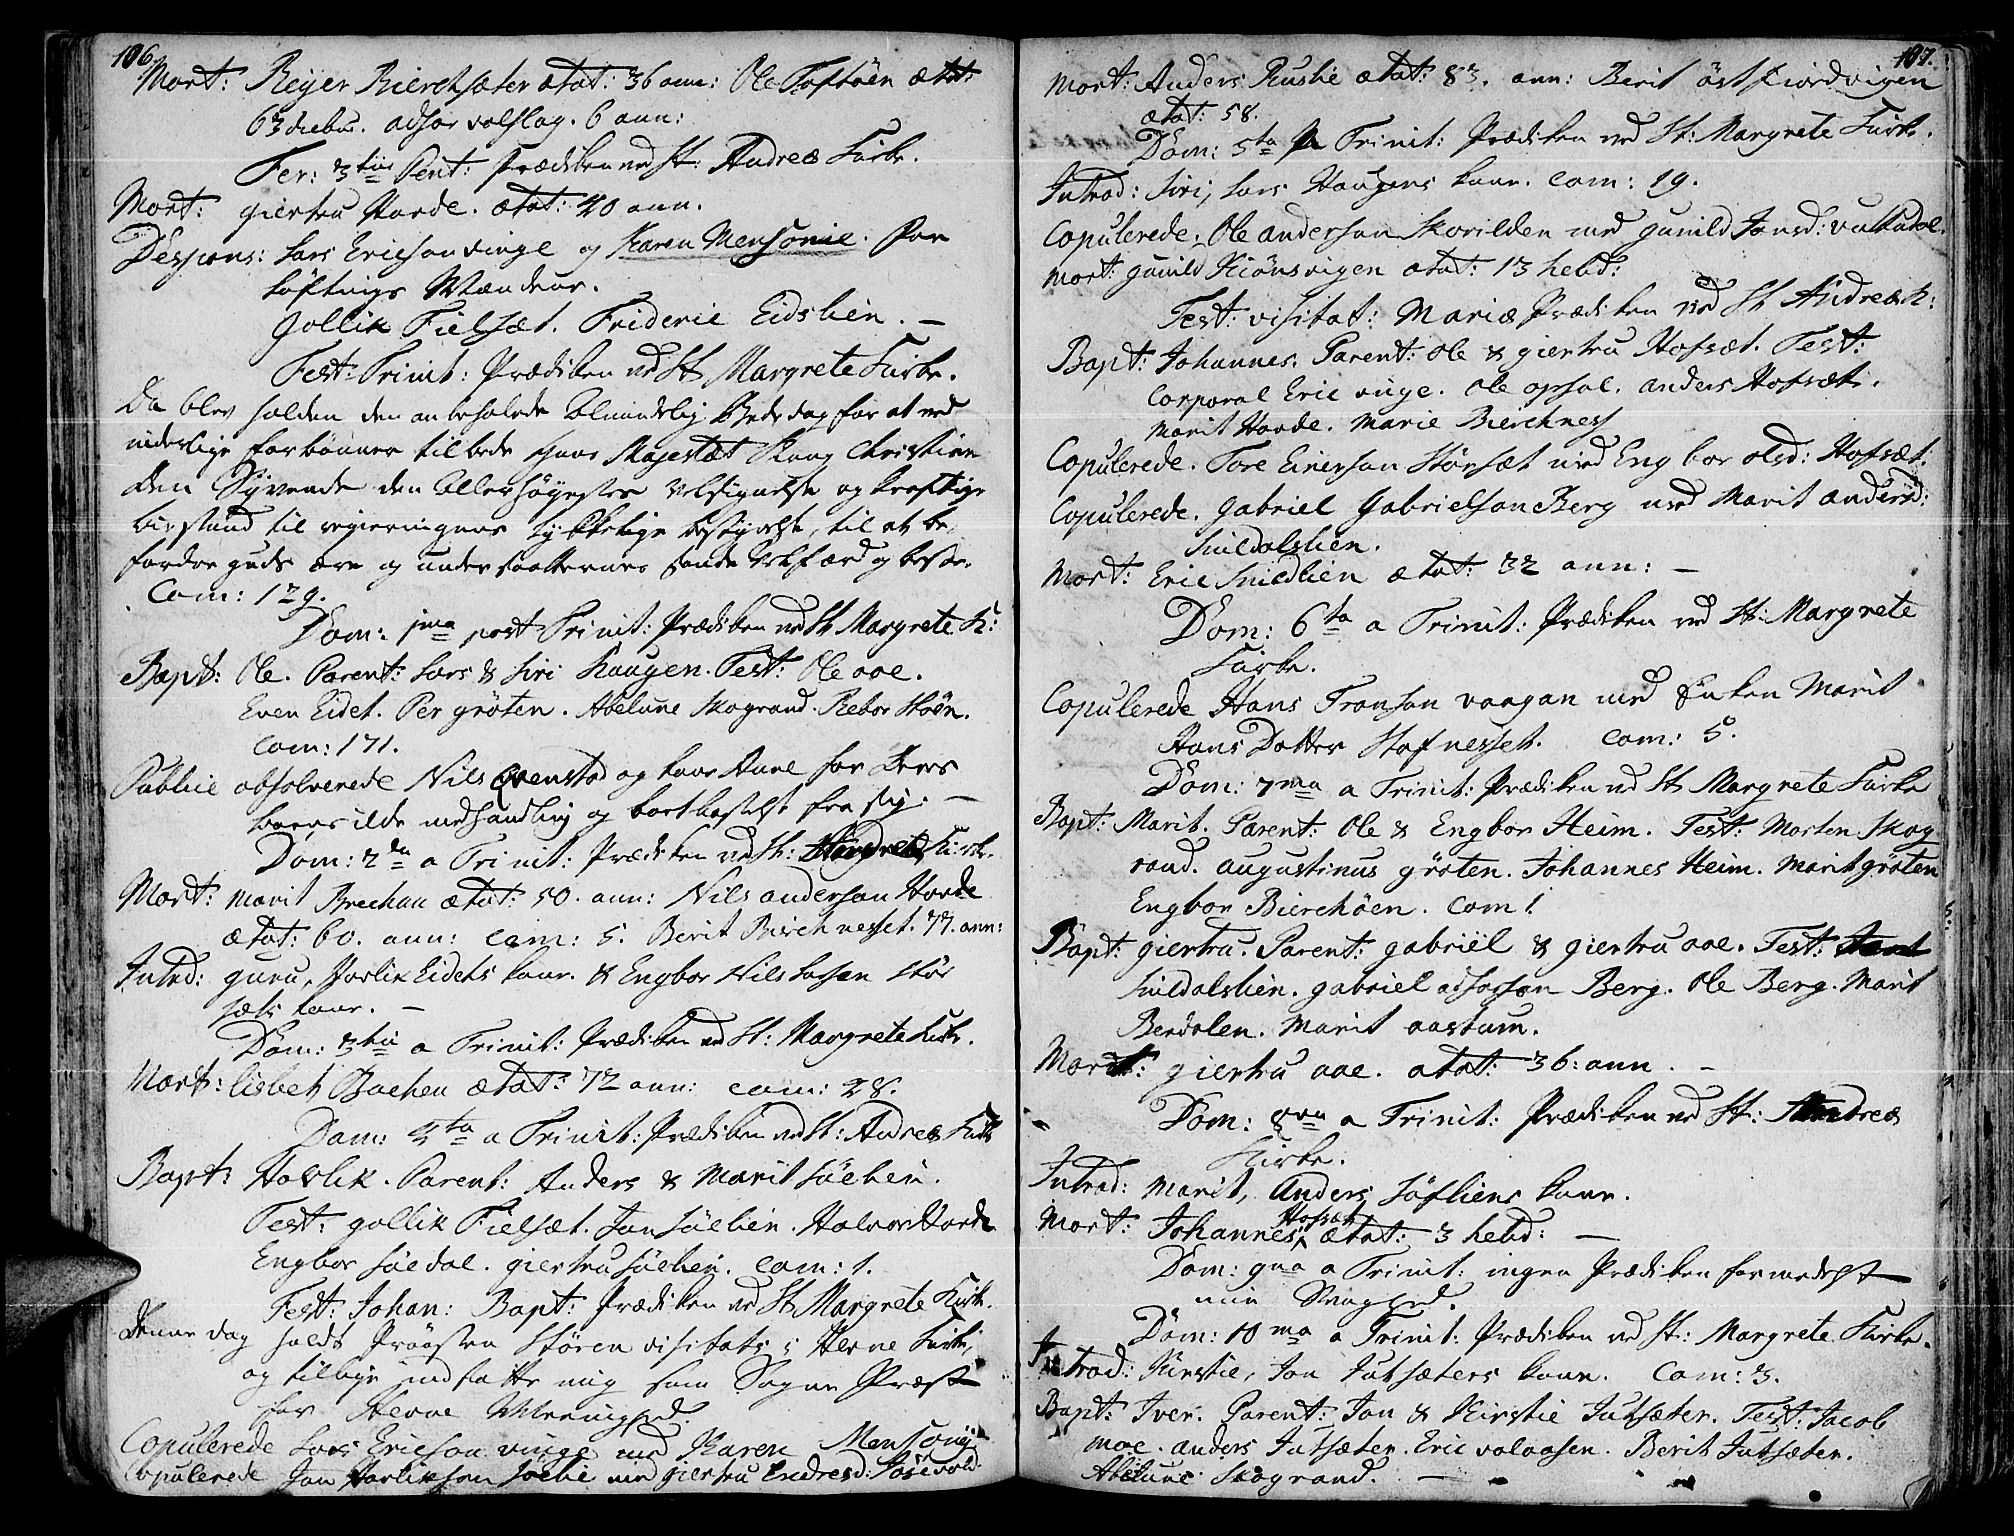 106.
Mort: Reyer Bierchsæter ætat: 36 ann: Ole Toftøen ætat:
63 diebu. adsor valslag. 6 ann:
Fer: 3tia Pent: Prædiken ved St: Andreæ Kirke.
Mort: giertru Harde. ætat: 20 ann.
Despons: Lars Ericson vinge og Karen Mensonie. For
løftnings Mændene.
Gollik Fielsæt. Frideric Eidslien. —
Fest: Trinit: Prædiken ved St Margrete Kirke.
Da blev holden den anbefalede almindelig Bededag for at ved
inderlige forbønner tilbede hans Majestæt Kong Christian
den Syvende den allerhøyestes Velsignelse og kraftige
bistand til regieringens lykkelige bestyrelse, til at be-
fordre guds ære og undersaatternes sande Velfærd og beste.
Com: 129.
Dom: 1ma post Trinit: Prædiken ved St Margrete K:
Bapt: Ole. Parent: Lars & Siri Haugen. Test: Ole aae.
Even Eidet. Per grøten. Abelune Skogrand. Rebor Støen.
Com: 171.
Publice absolverede Nils Evenstad og kone Anne for deres
barns ilde medhandling og bortkastelse fra sig. —
Dom: 2da a Trinit: Prædiken ved St: Kirke.
Mort: Marit Brechan ætat: 50. ann: Nils anderson Harde
ætat: 60. ann: com: 5. Berit Bierchnesset. 77. ann:
Introd: guru, Havlik Eidets kone. & Engbor Nils Larsen Stør
sæts kone. —
Dom: 3tia a Trinit: Prædiken ved St: Margrete Kirke.
Mort: lisbet Bachen ætat: 72 ann: com: 28.
Dom: 4ta a Trinit: Prædiken ved St: Andreæ Kirke
Bapt: Havlik. Parent: Anders & Marit Søelien.
Test: gollik Fielsæt. Jon Søelien. Halvor Harde
Engbor Søedal. giertru Søelien. com: 1.
Fest: Johan: Bapt: Prædiken ved St Margrete Kirke.
Denne dag holdt Provsten Støren visitats i Hevne Kirke,
og tillige indsatte mig som Sogne Præst
for Hevne Menighed.
Copulerede Lars Ericson vinge med Karen Mensonie
Copulerede Jon Havlikson Søelie med giertru Endresd:
107.
Mort: Anders Rustie ætat: 83. ann: Berit østfiordvigen
ætat: 58.
Dom: 5ta a Trinit: Prædiken ved St: Margrete Kirke.
Introd: Siri, Lars Haugens kone. com: 19.
Copulerede. Ole anderson Skorilden med gunild Jonsd:
Mort: gunild Kiønsvigen ætat: 13 hebd:
Fest: visitat: Mariæ Prædiken ved St Andreæ K:
Bapt: Johannes. Parent: Ole & giertru Hofsæt. Test:
Corporal Eric vinge. Ole opsal. anders Hofsæt.
Marit Harde. Marie Bierchness
Copulerede. Tore Einerson Størsæt med Engbor olsd: Hofsæt.
Copulerede. Gabriel Gabrielson Berg med Marit andersd:
Snildalslien.
Mort: Eric Snildlien ætat: 32 ann: —
Dom: 6ta a Trinit: Prædiken ved St: Margrete
Kirke.
Copulerede Hans Tronson vaagan med Enken Marit
Hans Datter Stafnesset. com: 5.
Dom: 7ma a Trinit: Prædiken ved St Margrete Kirke
Bapt: Marit. Parent: Ole & Engbor Heim. Test: Morten Skog
rand. augustinus grøten. Johannes Heim. Marit grøten
Engbor Bierchøen. com 1.
Bapt: giertru. Parent: gabriel & giertru aae. Test:
Snildalslien. gabriel Berg. Ole Berg. Marit
Berdalen. Marit aastum.
Mort: giertru aae. ætat: 36: ann. —
Dom: 8va a Trinit: Prædiken ved St: Andreæ
Kirke.
Introd: Marit, Anders Søfliens kone.
Mort: Johannes Hofsæt ætat: 3 hebd: —
Dom: 9na a Trinit: ingen Prædiken formedelst
min Svaghed.
Dom: 10ma a Trinit: Prædiken ved St: Margrete Kirke.
Introd: Kirstie, Jon Jutsæters kone. Com: 3.
Bapt: Iver. Parent: Jon & Kirstie Jutsæter. Test: Jacob
moe. anders Jutsæter. Eric valaasen. Berit Jutsæter.
Abelune Skogrand. —